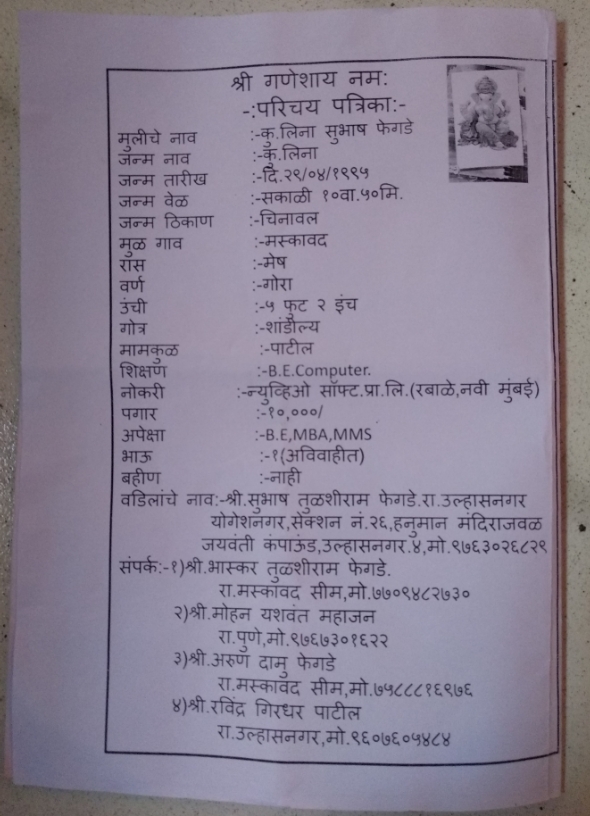 श्री गणेशाय नम:
-:परिचय पत्रिका:-
मुलीचे नाव :-कु.लिना सुभाष फेगडे
जन्म नाव :-कु.लिना
जन्म तारीख :-दि.२९/०४/१९९५
जन्म वेळ :-सकाळी १०वा.५०मि.
जन्म ठिकाण :-चिनावल
मुळ गाव :-मस्कावद
रास :-मेष
वर्ण :-गोरा
उंची :-५ फुट २ इंच
गोत्र :-शांडील्य
मामकुळ :-पाटील
शिक्षण :-B.E.Computer.
नोकरी :-न्युव्हिओ सॉफ्ट.प्रा.लि.(रबाळे,नवी मुंबई)
पगार :-१०,०००/
अपेक्षा :-B.E,MBA,MMS
भाऊ :-१(अविवाहीत)
बहीण :-नाही
वडिलांचे नाव:-श्री.सुभाष तुळशीराम फेगडे.रा.उल्हासनगर
योगेशनगर,सेक्शन नं.२६,हनुमान मंदिराजवळ
जयवंती कंपाऊंड,उल्हासनगर.४,मो.९७६३०२६८२९
संपर्क:-१)श्री.भास्कर तुळशीराम फेगडे.
रा.मस्कावद सीम,मो.७७०९४८२७३०
२)श्री.मोहन यशवंत महाजन
रा.पुणे,मो.९७६७३०१६२२
३)श्री.अरुण दामु फेगडे
रा.मस्कावद सीम,मो.७५८८८१६९७६
४)श्री.रविंद्र गिरधर पाटील
रा.उल्हासनगर,मो.९६०७६०५४८४